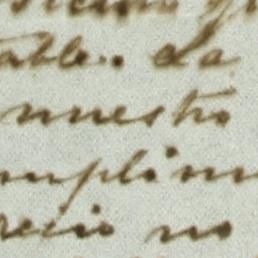 table.. La
nuestro
mplim
recio no